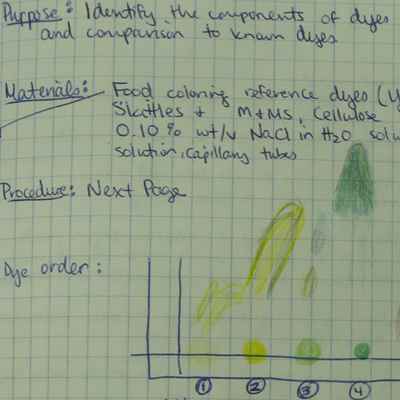 Purpose: Identify the components of dyes
and comparison to known dyes
Materials: Food coloring reference dyes (
Skittles & M&Ms, Cellulose
0.10% wt/v NaCl in H2O solu
solution, capillary tubes
Procedure: Next Page
Dye order:
1 2 3 4